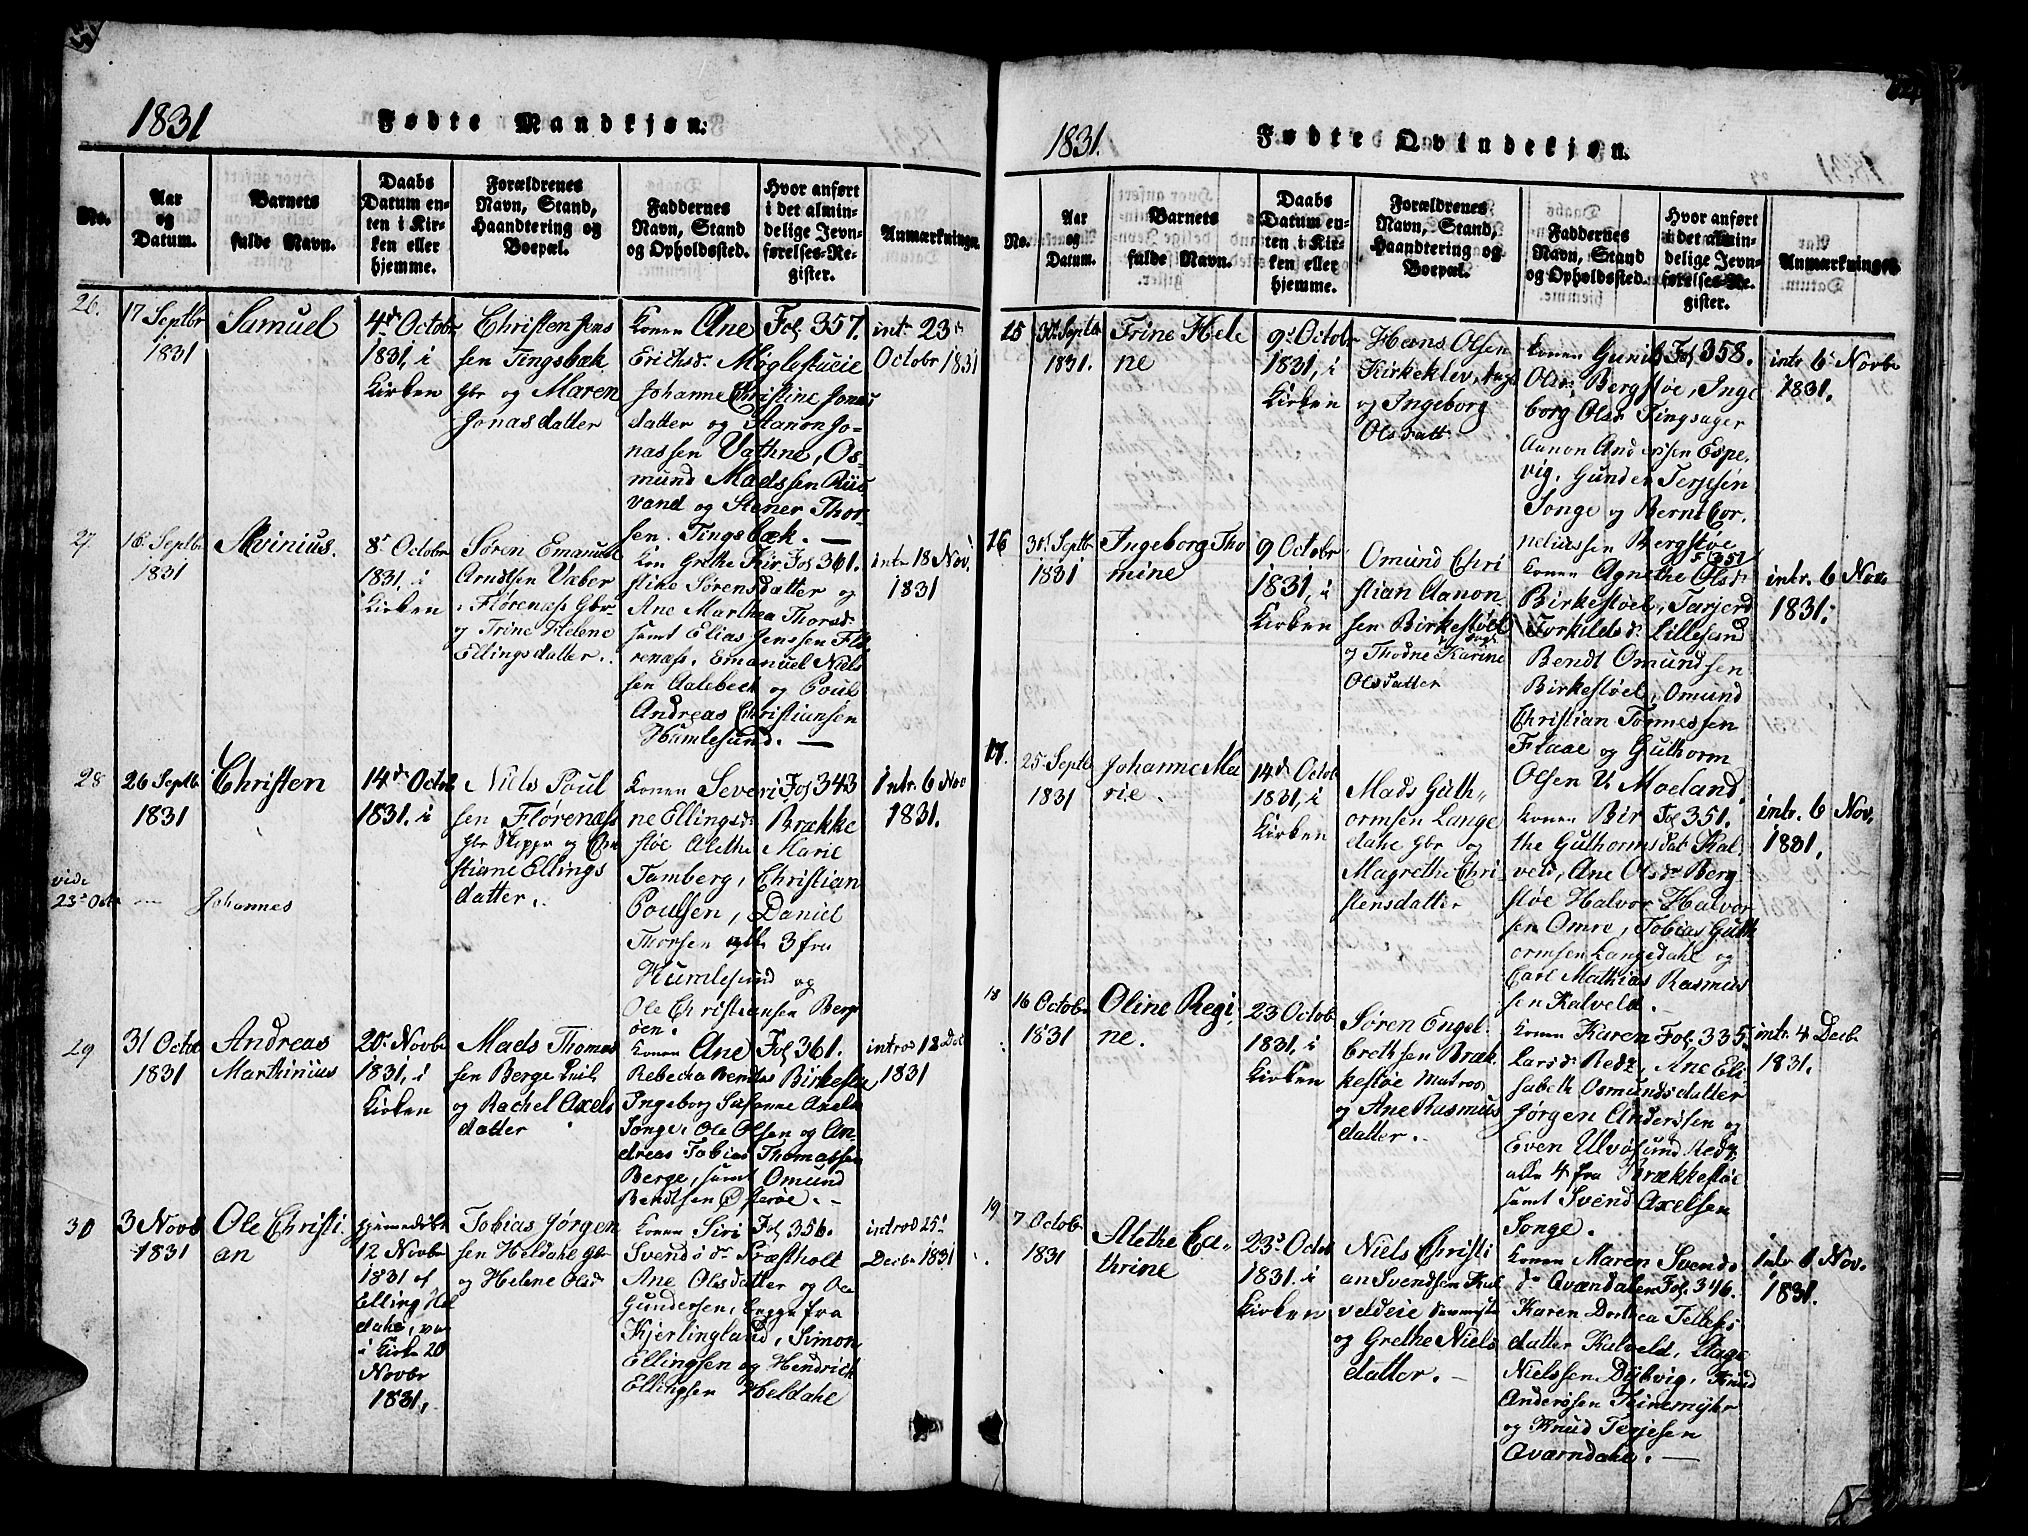 1831
Fødte Mandkjøn.
No.
Aar
og
Datum.
Barnets
fulde Navn.
Daabs
Datum en-
ten i Kir-
ken eller
hjemme.
Forældrenes
Navn, Stand,
Haandtering og
Boepæl.
Faddernes
Navn, Stand
og Opholdssted.
Hvor anført
i det almin-
delige Jevn-
førelses-Re-
gister.
Anmærkninger.
26.
17 Septbr
1831
Samuel
4de Octobr
1831, i
Kirken
Christen Jens
sen Tingsbæk
Gbr og Maren
Jonasdatter
Konen Ane
Erichsdr Møglestueie
Johanne Christine Jonas
datter og Aanon Jo-
nassen Vathne, Os-
mund Madssen Riis
vand og Stener Thor-
sen Tingsbæk. —
Fol 357.
intr 23
Octobr 1831
27.
16 Septbr
1831
Alvinius.
8de Octobr
1831, i
Kirken
Søren Emanuel
Arndtsen Væber
i Flørenæss Gbr
og Trine Helene
Ellingsdatter.
Kon Grethe Kir
stine Sørensdatter og
Ane Marthea Thorsdr
samt Elias Jenssen Flø
renæss. Emanuel Niels
sen Aalebeck og Poul
Andreas Christiansen
Humlesund. —
Fol 361.
intr 18 Nov.
1831
28
26 Septbr
1831
Christen
14de Octobr
1831, i
Niels Poul
sen Flørenæss
Gbr Skipper og Chri
stiane Ellings
datter.
Konen Severi
ne Ellingsdr Brække
støe Alethe Marie
Tamberg, Christian
Poulsen, Daniel
Thorsen alle 3 fra
Humlesund og
Ole Christiansen Berge
øen.
Fol 343
Intr. 6 Nov
1831.
vide
23de Octr
—
Johannes
29
31 Octor
1831
Andreas
Marthinius
20de Novbr
1831, i
Kirken
Mads Thomas
sen Berge
og Rachel Axels
datter
Konen Ane
Rebecka Bendts Birkestø
Ingeborg Susanne Axels
Songe, Ole Olsen og An
dreas Tobias Thomassen
Berge, samt Omund
Bendtsen Osterøe. —
Fol 361.
introd 18 Dec
1831
30
3 Novb
1831
Ole Christi
an
hjemmedøbt
12 Novbr
1831 af
Elling Hel
dahl,
i Kirken 20
Novbr
1831.
Tobias Jørgen
sen Heldahl Gbr
og Helene Olsdr
Konen Siri
Svendsdr Præstholt
Ane Olsdatter og Ole
Gundersen, begge fra
Kjerlingland, Simon
Ellingsen og Hendrich
Ellingsen Heldahl
Fol 356.
introd 25de
Decbr 1831
1831.
Fødte Qvindekjøn.
No.
Aar
og
Datum.
Barnets
fulde Navn.
Daabs
Datum en-
ten i Kir-
ken eller
hjemme.
Forældrenes
Navn, Stand,
Haandtering og
Boepæl.
Faddernes
Navn, Stand
og Opholdssted.
Hvor anført
i det almin-
delige Jevn-
førelses-Re-
gister.
Anmærkninger.
15
30 Septbr
1831.
Trine Hele
ne
9de Octobr
1831, i
Kirken
Hans Olsen
Kirkeklev,
og Ingeborg
Olsdatt
Konen Gunild
Olsdr Bergstøe, Inge
borg Olsdr Tingsager
Aanon Anderssen Espe-
vig, Gunder Terjesen
Songe og Bernt Cor-
neliussen Bergstøe
Fol 358.
intr 6 Novbr
1831.
16
30 Septbr
1831
Ingeborg Tho
mine
9 Octobr
1831, i
Kirken
Omund Chri
stian Aanon
sen Birkestøel
og Thodne Karine
Olsdatter
Konen Agnethe Olsdr
Birkestøel, Tarjerd
Torkildsdr Lillesand
Bendt Omundsen
Birkestøel, Omund
Christian Tønnessen
Flaae og Guthorm
Olsen V. Moeland.
Fol 351
intr. 6 Nov
1831.
17.
25 Septb
1831
Johanne Ma
rie
14de Octobr
1831, i
Kirken
Mads Guth-
ormsen Lange
dahl Gbr og
Magrethe Chri
stensdatter
Konen Bir
the Guthormsdat Kal
veld, Ane Olsdr Berg
støe Halvor Halvor
sen Omre, Tobias Guth
ormsen Langedahl og
Carl Mathias Rasmus
sen Kalveld.
Fol 351.
intr. 6 Nov.
1831.
18
16 Octobr
1831
Oline Regi
ne.
23 Octobr
1831, i
Kirken
Søren Engel-
brethsen Bræk
kestøe Matros
og Ane Rasmus
datter.
Konen Karen
Larsdr Redz, Ane Eli
sabeth Osmundsdatter
Jørgen Anderssen og
Even Ulvøsund Redz
alle 4 fra Brækkestøe
samt Svend Axelsen
Songe.
Fol 335.
intr 4 Decbr
1831.
19
7 Octobr
1831
Alethe Ca-
thrine
23de Octob
1831. i
Kirken
Niels Christi
an Svendsen Kal
veldeie
og Grethe Niels
datter. —
Konen Maren Svends
dr Qvændalen Fol. 346.
Karen Dorthea Tellefs
datter Kalveld, Aage
Nielssen Dybvig, Knud
Anderssen Steinemyhr
og Knud Terjesen
Qværndahl. —
Intr 1 Nov.
1831.